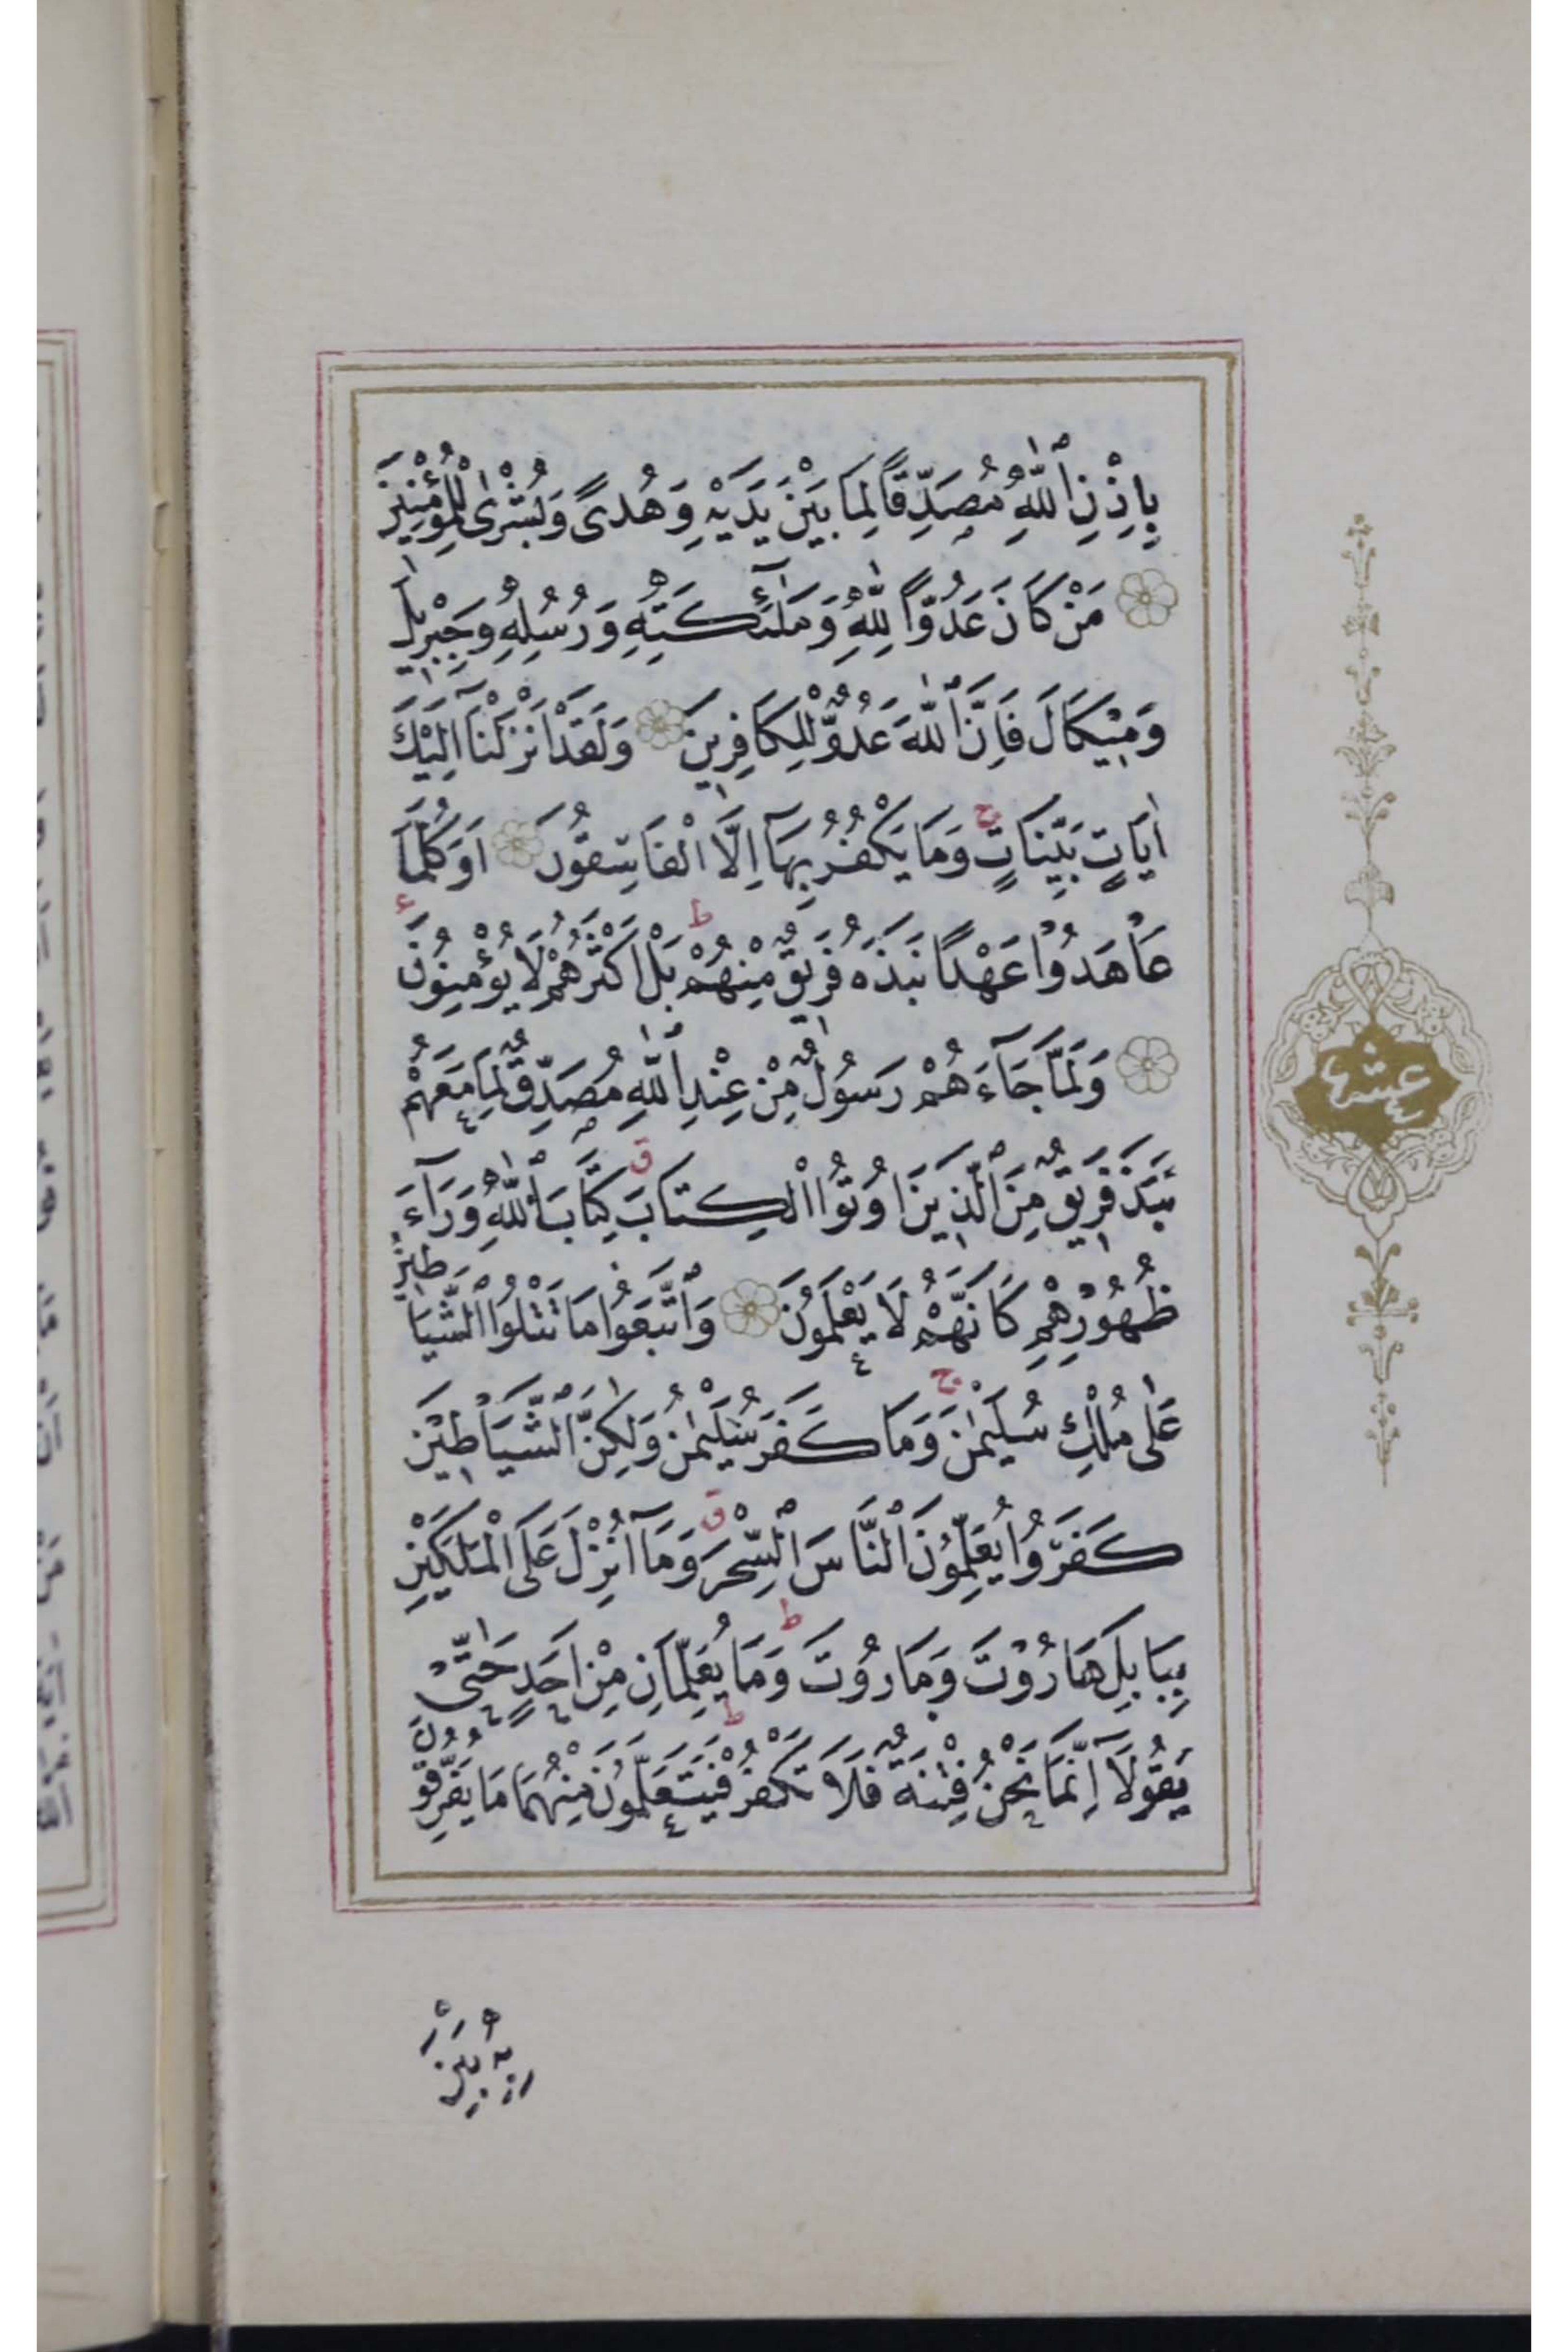 بِاِذْنِ ٱللّٰهِ مُصَدِّقًا لِمَا بَيْنَ يَدَيْهِ وَهُدًى وَبُشْرٰى لِلْمُؤْمِنِينَ
مَنْ كَانَ عَدُوًّا لِلّٰهِ وَمَلٰٓئِكَتِهٖ وَرُسُلِهٖ وَجِبْرِيلَ
وَمِيْكَالَ فَاِنَّ ٱللّٰهَ عَدُوٌّ لِلْكَافِرِينَ وَلَقَدْ اَنْزَلْنَآ اِلَيْكَ
اٰيَاتٍ بَيِّنَاتٍ ج وَمَا يَكْفُرُ بِهَآ اِلَّا الْفَاسِقُونَ اَوَكُلَّمَا
عَاهَدُوْا عَهْدًا نَبَذَهُ فَرِيقٌ مِنْهُمْ ط بَلْ اَكْثَرُهُمْ لَا يُؤْمِنُونَ
وَلَمَّا جَآءَهُمْ رَسُولٌ مِنْ عِنْدِ ٱللّٰهِ مُصَدِّقٌ لِمَا مَعَهُمْ
نَبَذَ فَرِيقٌ مِنَ ٱلَّذِينَ اُوتُوا الْكِتَابَ ق كِتَابَ ٱللّٰهِ وَرَآءَ
ظُهُوْرِهِمْ كَاَنَّهُمْ لَا يَعْلَمُونَ وَٱتَّبَعُوا مَا تَتْلُوا ٱلشَّيَاطِينُ
عَلٰى مُلْكِ سُلَيْمٰنَ ج وَمَا كَفَرَ سُلَيْمٰنُ وَلٰكِنَّ ٱلشَّيَاطِينَ
كَفَرُوا يُعَلِّمُونَ ٱلنَّاسَ ٱلسِّحْرَ ق وَمَآ اُنْزِلَ عَلَى الْمَلَكَيْنِ
بِبَابِلَ هَارُوْتَ وَمَارُوْتَ ط وَمَا يُعَلِّمَانِ مِنْ اَحَدٍ حَتّٰى
يَقُولَآ اِنَّمَا نَحْنُ فِتْنَةٌ فَلَا تَكْفُرْ ط فَيَتَعَلَّمُونَ مِنْهُمَا مَا يُفَرِّقُونَ
بِهٖ بَيْنَ
عشر